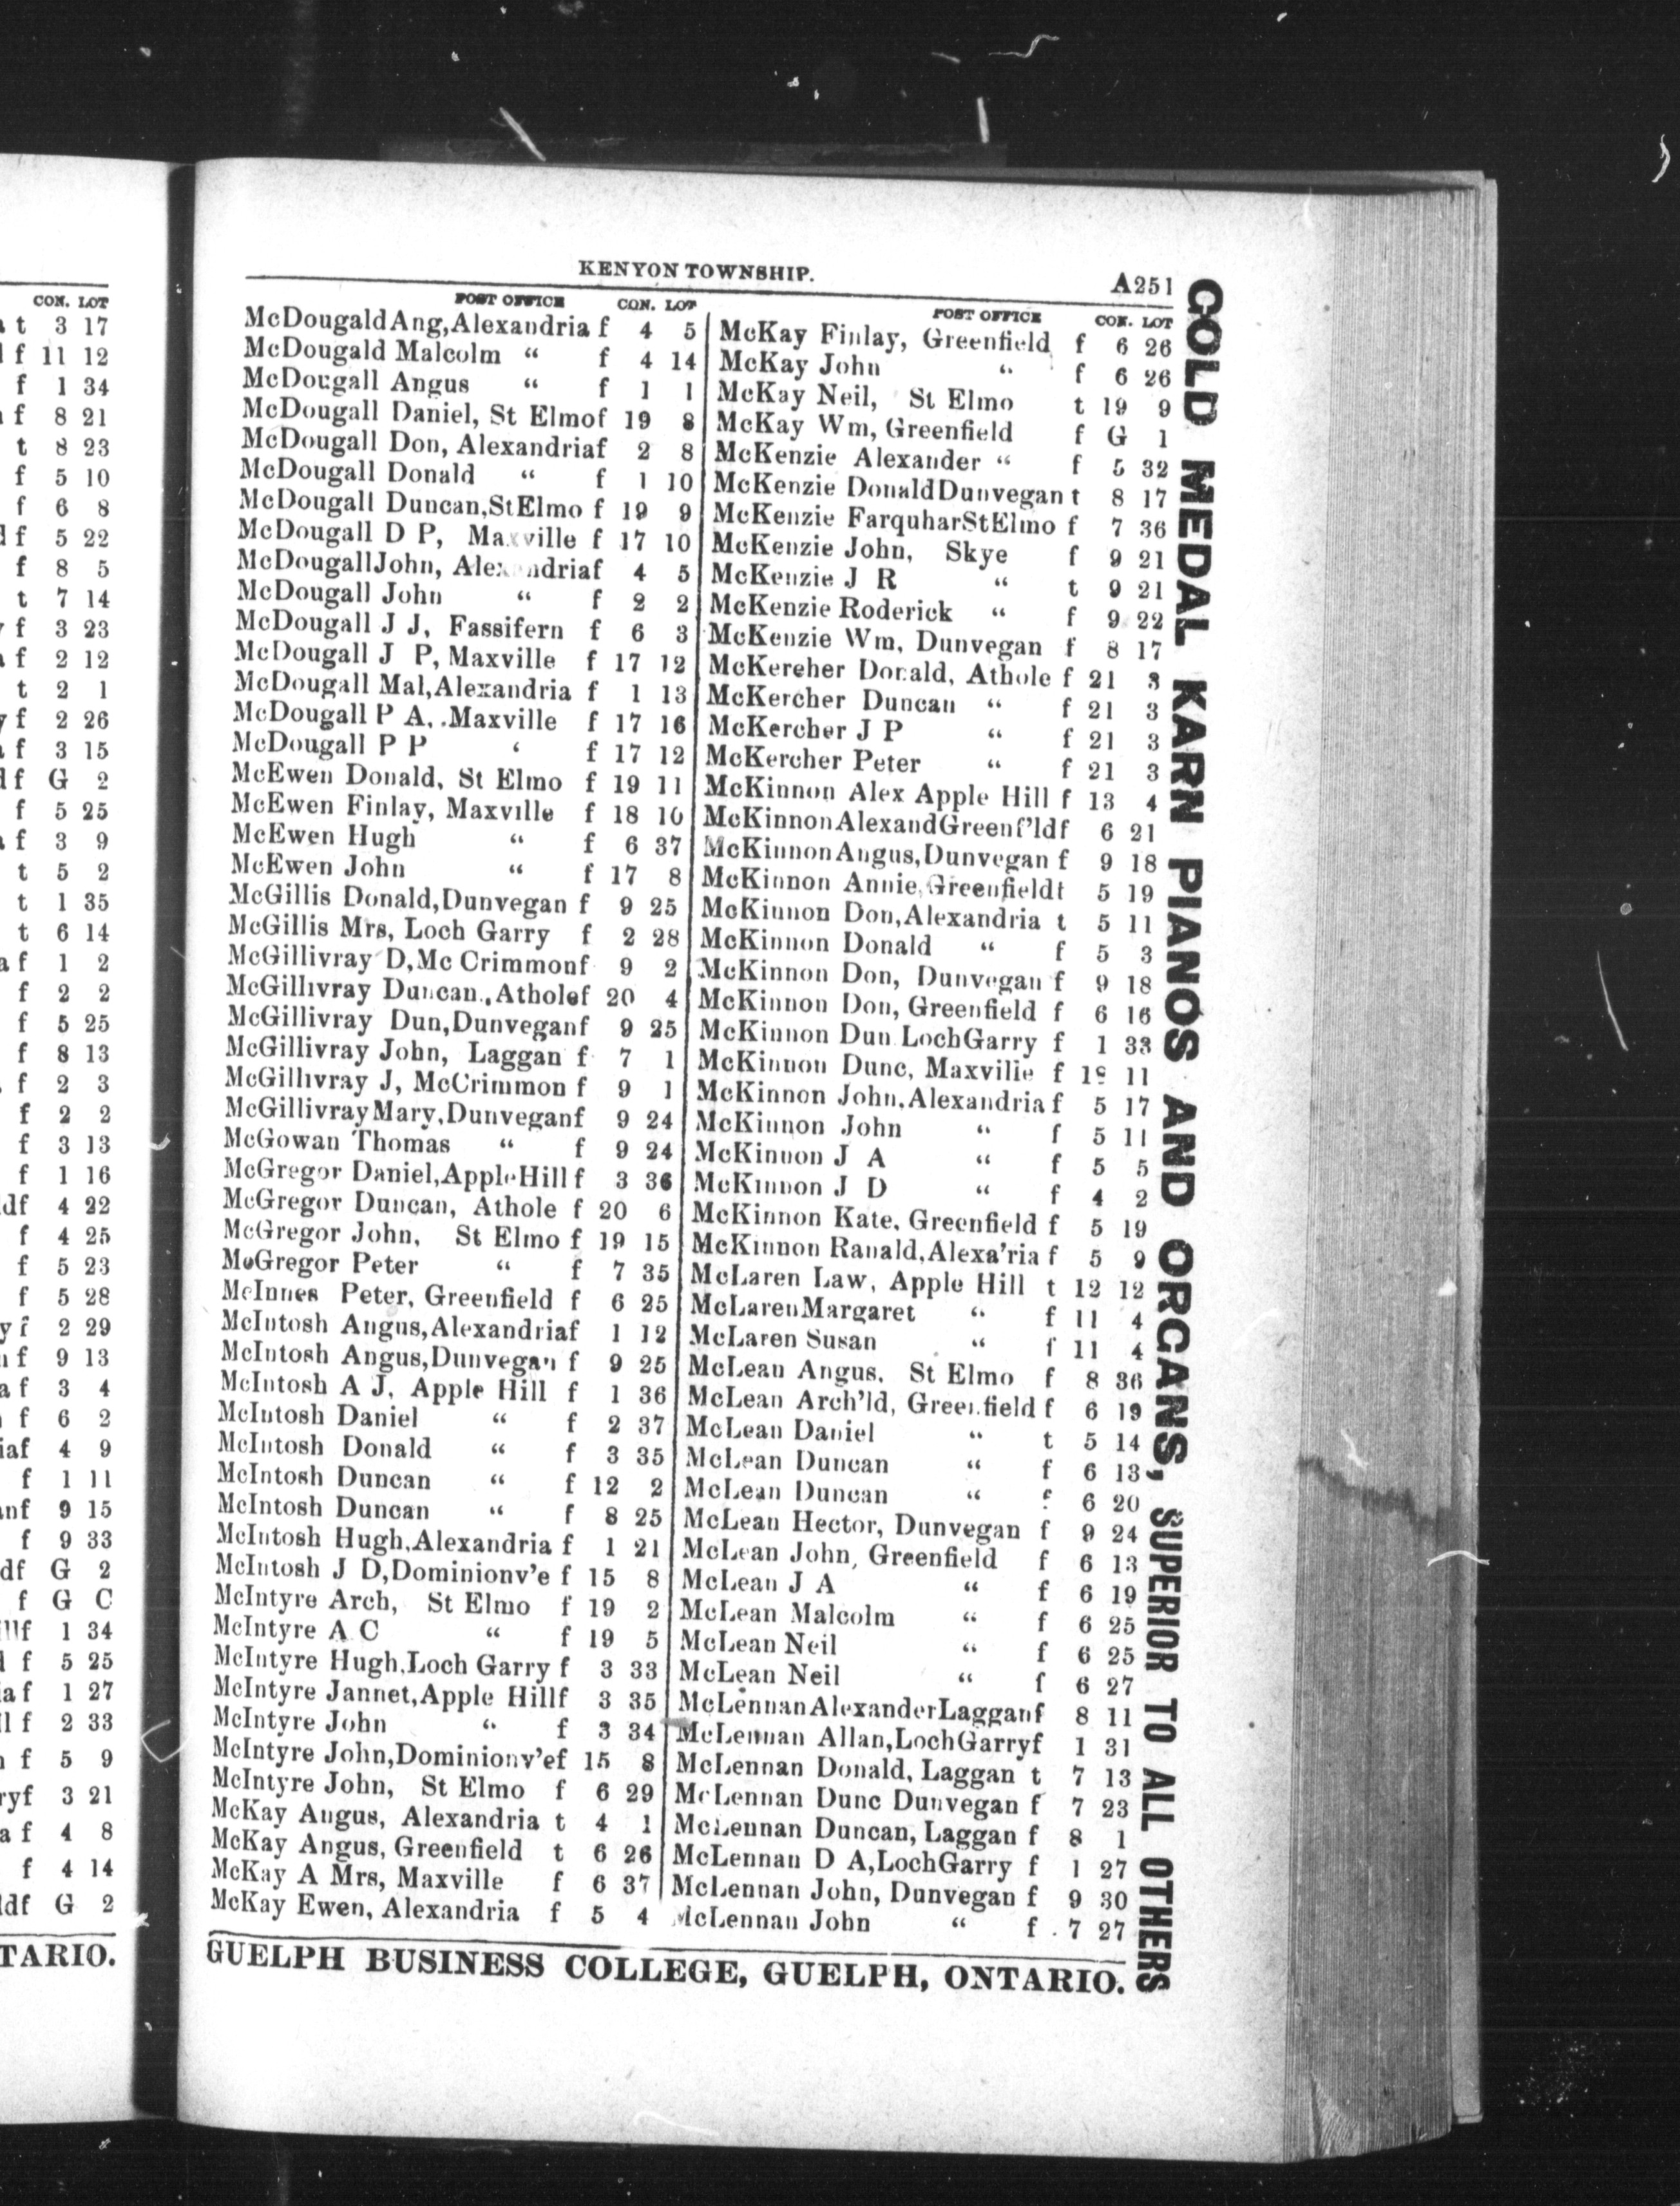 CON. LOT
t 3 17
f 11 12
f 1 34
f 8 21
t 8 23
f 5 10
f 6 8
f 5 22
f 8 5
t 7 14
f 3 23
f 2 12
t 2 1
f 2 26
f 3 15
f G 2
f 5 25
f 3 9
t 5 2
t 1 35
t 6 14
f 1 2
f 2 2
f 5 25
f 8 13
f 2 3
f 2 2
f 3 13
f 1 16
df 4 22
f 4 25
f 5 23
f 5 28
y f 2 29
f 9 13
a f 3 4
f 6 2
iaf 4 9
f 1 11
nf 9 15
f 9 33
df G 2
f G C
llf 1 34
f 5 25
af 1 27
l f 2 33
f 5 9
ryf 3 21
a f 4 8
f 4 14
df G 2
TARIO.
KENYON TOWNSHIP.
A251
POST OFFICE CON. LOT
McDougald Ang, Alexandria f 4 5
McDougald Malcolm “ f 4 14
McDougall Angus “ f 1 1
McDougall Daniel, St Elmo f 19 8
McDougall Don, Alexandria f 2 8
McDougall Donald “ f 1 10
McDougall Duncan, St Elmo f 19 9
McDougall D P, Maxville f 17 10
McDougall John, Alexandria f 4 5
McDougall John “ f 2 2
McDougall J J, Fassifern f 6 3
McDougall J P, Maxville f 17 12
McDougall Mal, Alexandria f 1 13
McDougall P A, .Maxville f 17 16
McDougall P P ‘ f 17 12
McEwen Donald, St Elmo f 19 11
McEwen Finlay, Maxville f 18 10
McEwen Hugh “ f 6 37
McEwen John “ f 17 8
McGillis Donald, Dunvegan f 9 25
McGillis Mrs, Loch Garry f 2 28
McGillivray D, Mc Crimmon f 9 2
McGillivray Duncan., Athole f 20 4
McGillivray Dun, Dunvegan f 9 25
McGillivray John, Laggan f 7 1
McGillivray J, McCrimmon f 9 1
McGillivray Mary, Dunvegan f 9 24
McGowan Thomas “ f 9 24
McGregor Daniel, Apple Hill f 3 36
McGregor Duncan, Athole f 20 6
McGregor John, St Elmo f 19 15
McGregor Peter “ f 7 35
McInnes Peter, Greenfield f 6 25
McIntosh Angus, Alexandria f 1 12
McIntosh Angus, Dunvegan f 9 25
McIntosh A J, Apple Hill f 1 36
McIntosh Daniel “ f 2 37
McIntosh Donald “ f 3 35
McIntosh Duncan “ f 12 2
McIntosh Duncan “ f 8 25
McIntosh Hugh, Alexandria f 1 21
McIntosh J D, Dominionv'e f 15 8
McIntyre Arch, St Elmo f 19 2
McIntyre A C “ f 19 5
McIntyre Hugh, Loch Garry f 3 33
McIntyre Jannet, Apple Hill f 3 35
McIntyre John “ f 3 34
McIntyre John, Dominionv'e f 15 8
McIntyre John, St Elmo f 6 29
McKay Angus, Alexandria t 4 1
McKay Angus, Greenfield t 6 26
McKay A Mrs, Maxville f 6 37
McKay Ewen, Alexandria f 5 4
POST OFFICE CON. LOT
McKay Finlay, Greenfield f 6 26
McKay John “ f 6 26
McKay Neil, St Elmo t 19 9
McKay Wm, Greenfield f G 1
McKenzie Alexander “ f 5 32
McKenzie Donald Dunvegan t 8 17
McKenzie Farquhar St Elmo f 7 36
McKenzie John, Skye f 9 21
McKenzie J R “ t 9 21
McKenzie Roderick “ f 9 22
McKenzie Wm, Dunvegan f 8 17
McKercher Donald, Athole f 21 3
McKercher Duncan “ f 21 3
McKercher J P “ f 21 3
McKercher Peter “ f 21 3
McKinnon Alex Apple Hill f 13 4
McKinnon Alexand Greenf'ld f 6 21
McKinnon Angus, Dunvegan f 9 18
McKinnon Annie, Greenfield t 5 19
McKinnon Don, Alexandria t 5 11
McKinnon Donald “ f 5 3
McKinnon Don, Dunvegan f 9 18
McKinnon Don, Greenfield f 6 16
McKinnon Dun Loch Garry f 1 33
McKinnon Dunc, Maxville f 11
McKinnon John, Alexandria f 5 17
McKinnon John “ f 5 11
McKinnon J A “ f 5 5
McKinnon J D “ f 4 2
McKinnon Kate, Greenfield f 5 19
McKinnon Ranald, Alexa'ria f 5 9
McLaren Law, Apple Hill t 12 12
McLaren Margaret “ f 11 4
McLaren Susan “ f 11 4
McLean Angus, St Elmo f 8 36
McLean Arch'ld, Greenfield f 6 19
McLean Daniel “ t 5 14
McLean Duncan “ f 6 13
McLean Duncan “ f 6 20
McLean Hector, Dunvegan f 9 24
McLean John, Greenfield f 6 13
McLean J A “ f 6 19
McLean Malcolm “ f 6 25
McLean Neil “ f 6 25
McLean Neil “ f 6 27
McLennan Alexander Laggan f 8 11
McLennan Allan, Loch Garry f 1 31
McLennan Donald, Laggan t 7 13
McLennan Dunc Dunvegan f 7 23
McLennan Duncan, Laggan f 8 1
McLennan D A, Loch Garry f 1 27
McLennan John, Dunvegan f 9 30
McLennan John “ f . 7 27
GUELPH BUSINESS COLLEGE, GUELPH, ONTARIO.
GOLD MEDAL KARN PIANOS AND ORGANS, SUPERIOR TO ALL OTHERS